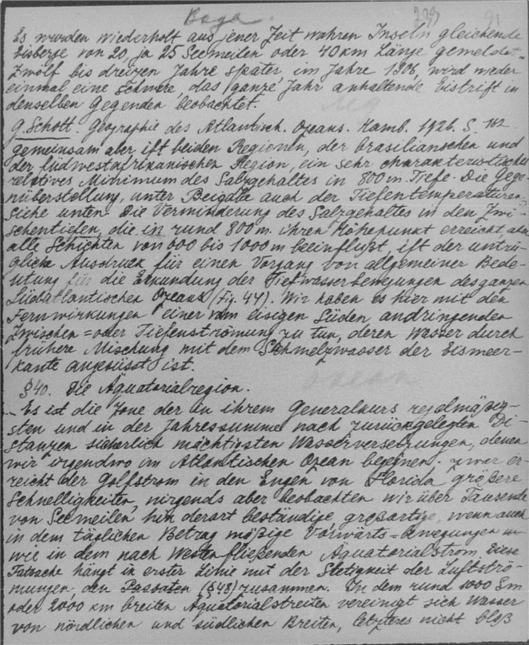 Es wurden wiederholt aus jener Zeit wahren Inseln gleichende
Eisberge von 20 ja 25 Seemeilen oder 40 km Länge gemeldet.
Zwölf bis dreizen Jahre später im Jahre 1906, wird wieder
einmal eine schwere, das ganze Jahr anhaltende Eistrift in
denselben Gegenden beobachtet.
G. Schott. Geographie des Atlantisch. Ozeans. Hamb. 1926. S.
Gemeinsam aber ist beiden Regionen, der brasilianischen und
der südwestafrikanischen Region, ein sehr charakteristisches
relatives Minimum des Salzgehaltes in 800 m. Tiefe. Die Gege-
nüberstellung, unter Beigabe auch der Tiefentemperaturen,
siehe unten. Die Verminderung des Salzgehaltes in den Zwi-
schentiefen, die in rund 800 m. ihren Höhepunkt erreicht, aber
alle Schichten von 600 bis 1000 m beeinflußt, ist der untrü-
gliche Ausdruck für einen Vorgang von allgemeiner Bede-
utung für die Erkundung der Tiefwasserbewegungen des ganzen
Südatlantischen Ozeans (Fig. 44). Wir haben es hier mit den
Fernwirkungen einer vom eisigen Süden andringenden
Zwischen= oder Tiefenströmung zu tun, deren Wasser durch
frühere Mischung mit dem Schmelzwasser der Eismeer-
kante angesüsst ist.
§40. Die Äquatorialregion.
Es ist die Zone der in ihrem Generalkurs regelmäßig-
sten und in der Jahressumme nach zurückgelegten Di-
stanzen sicherlich mächtigsten Wasserversetzungen, denen
wir irgendwo im Atlantischen Ozean begegnen. Zwar er-
reicht der Golfstrom in den Engen von Florida größere
Schnelligkeiten, nirgends aber beobachten wir über Tausende
von Seemeilen hin derart beständige, großartige, wenn auch
in dem täglichen Betrag mäßige Vorwärts-Bewegungen
wie in dem nach Westen fließenden Äquatorialstrom, diese
Tatsache hängt in erster Linie mit der Stetigkeit der Luftströ-
mungen, den Passaten (§43) zusammen. In dem rund 1000 Sm
oder 2000 km breiten Äquatorialstreifen vereinigt sich Wasser
von nördlichen und südlichen Breiten, letzteres nicht bloß